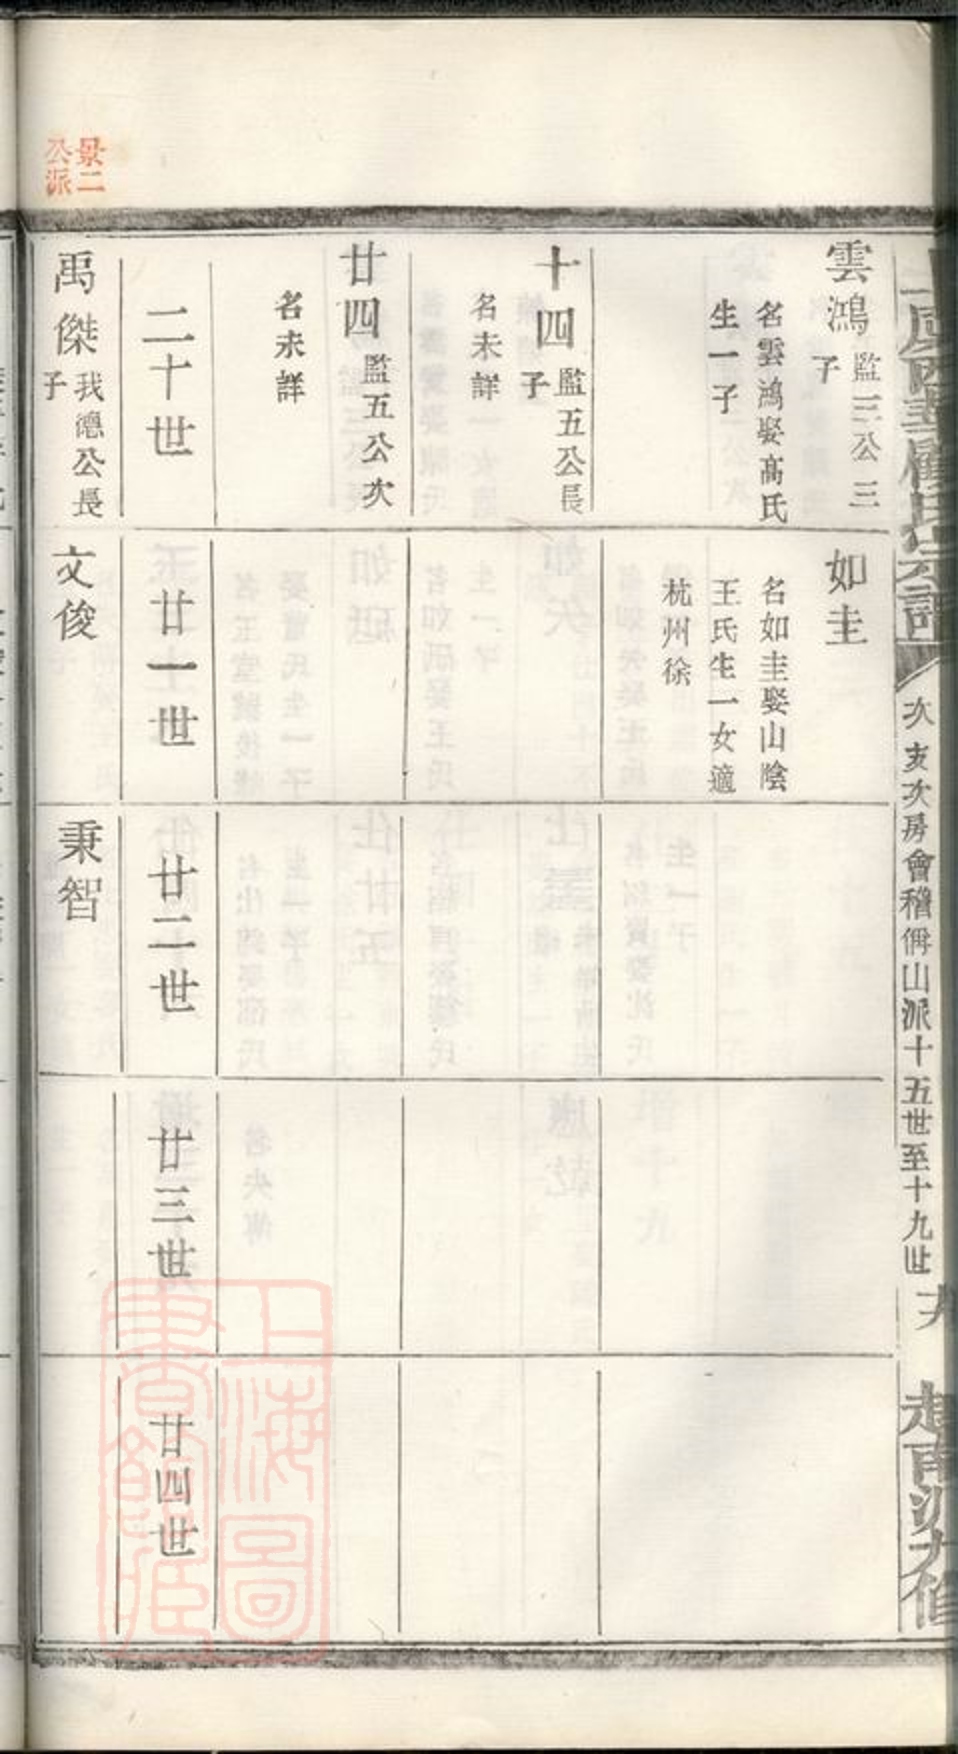 景二
公派
次亥次房會稽偁山派十五世至十九世
雲鴻
監三公三
子
名雲鴻娶高氏
生一子
如圭
名如圭娶山陰
王氏生一女適
杭州徐
十四
監五公長
子
名未詳
廿四
監五公次
名未詳
二十世
廿一世
廿二世
廿三世
廿四世
禹傑
我德公長
子
文俊
秉智
上海圖
書館藏